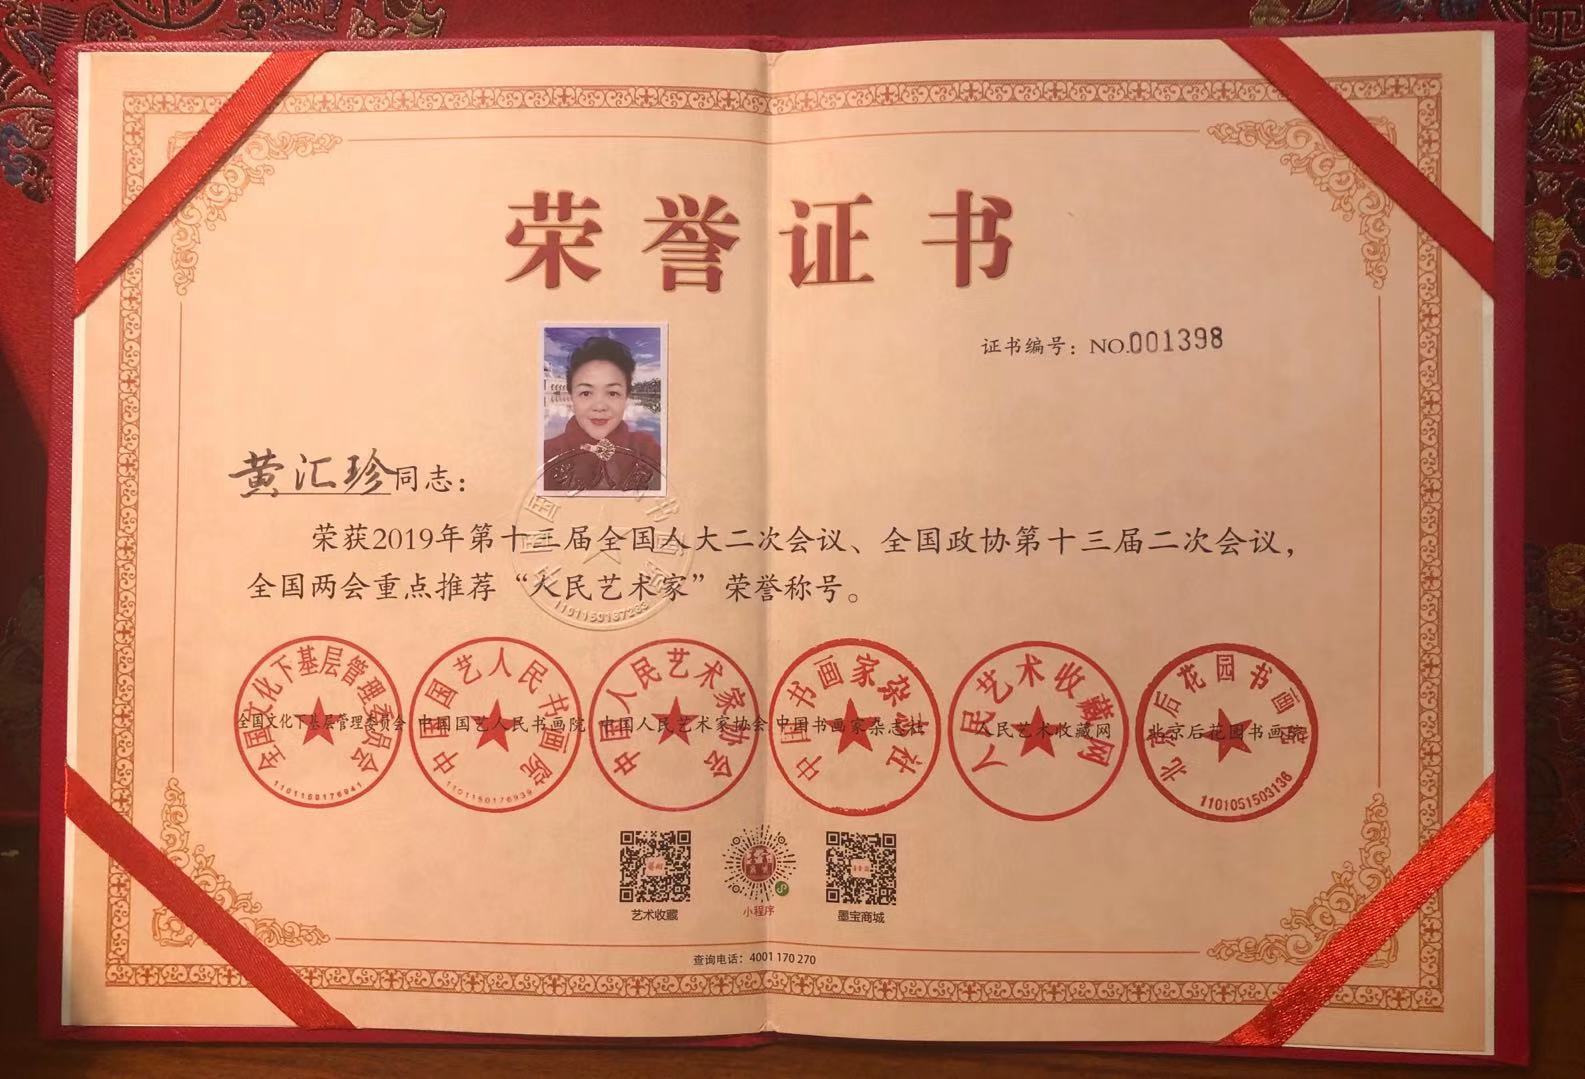 荣誉证书
证书编号：NO.001398
黄汇珍同志：
荣获2019年第十三届全国人大二次会议、全国政协第十三届二次会议，
全国两会重点推荐“人民艺术家”荣誉称号。
全国文化下基层管理委员会 中国国艺人民书画院 中国人民艺术家协会 中国书画家杂志社 人民艺术收藏网 北京后花园书画院
全国文化下基层管理委员会
1101150176941
中国国艺人民书画院
1101150176939
中国人民艺术家协会
中国书画家杂志社
人民艺术收藏网
北京后花园书画院
1101051503136
艺术收藏
小程序
墨宝商城
查询电话：4001 170 270